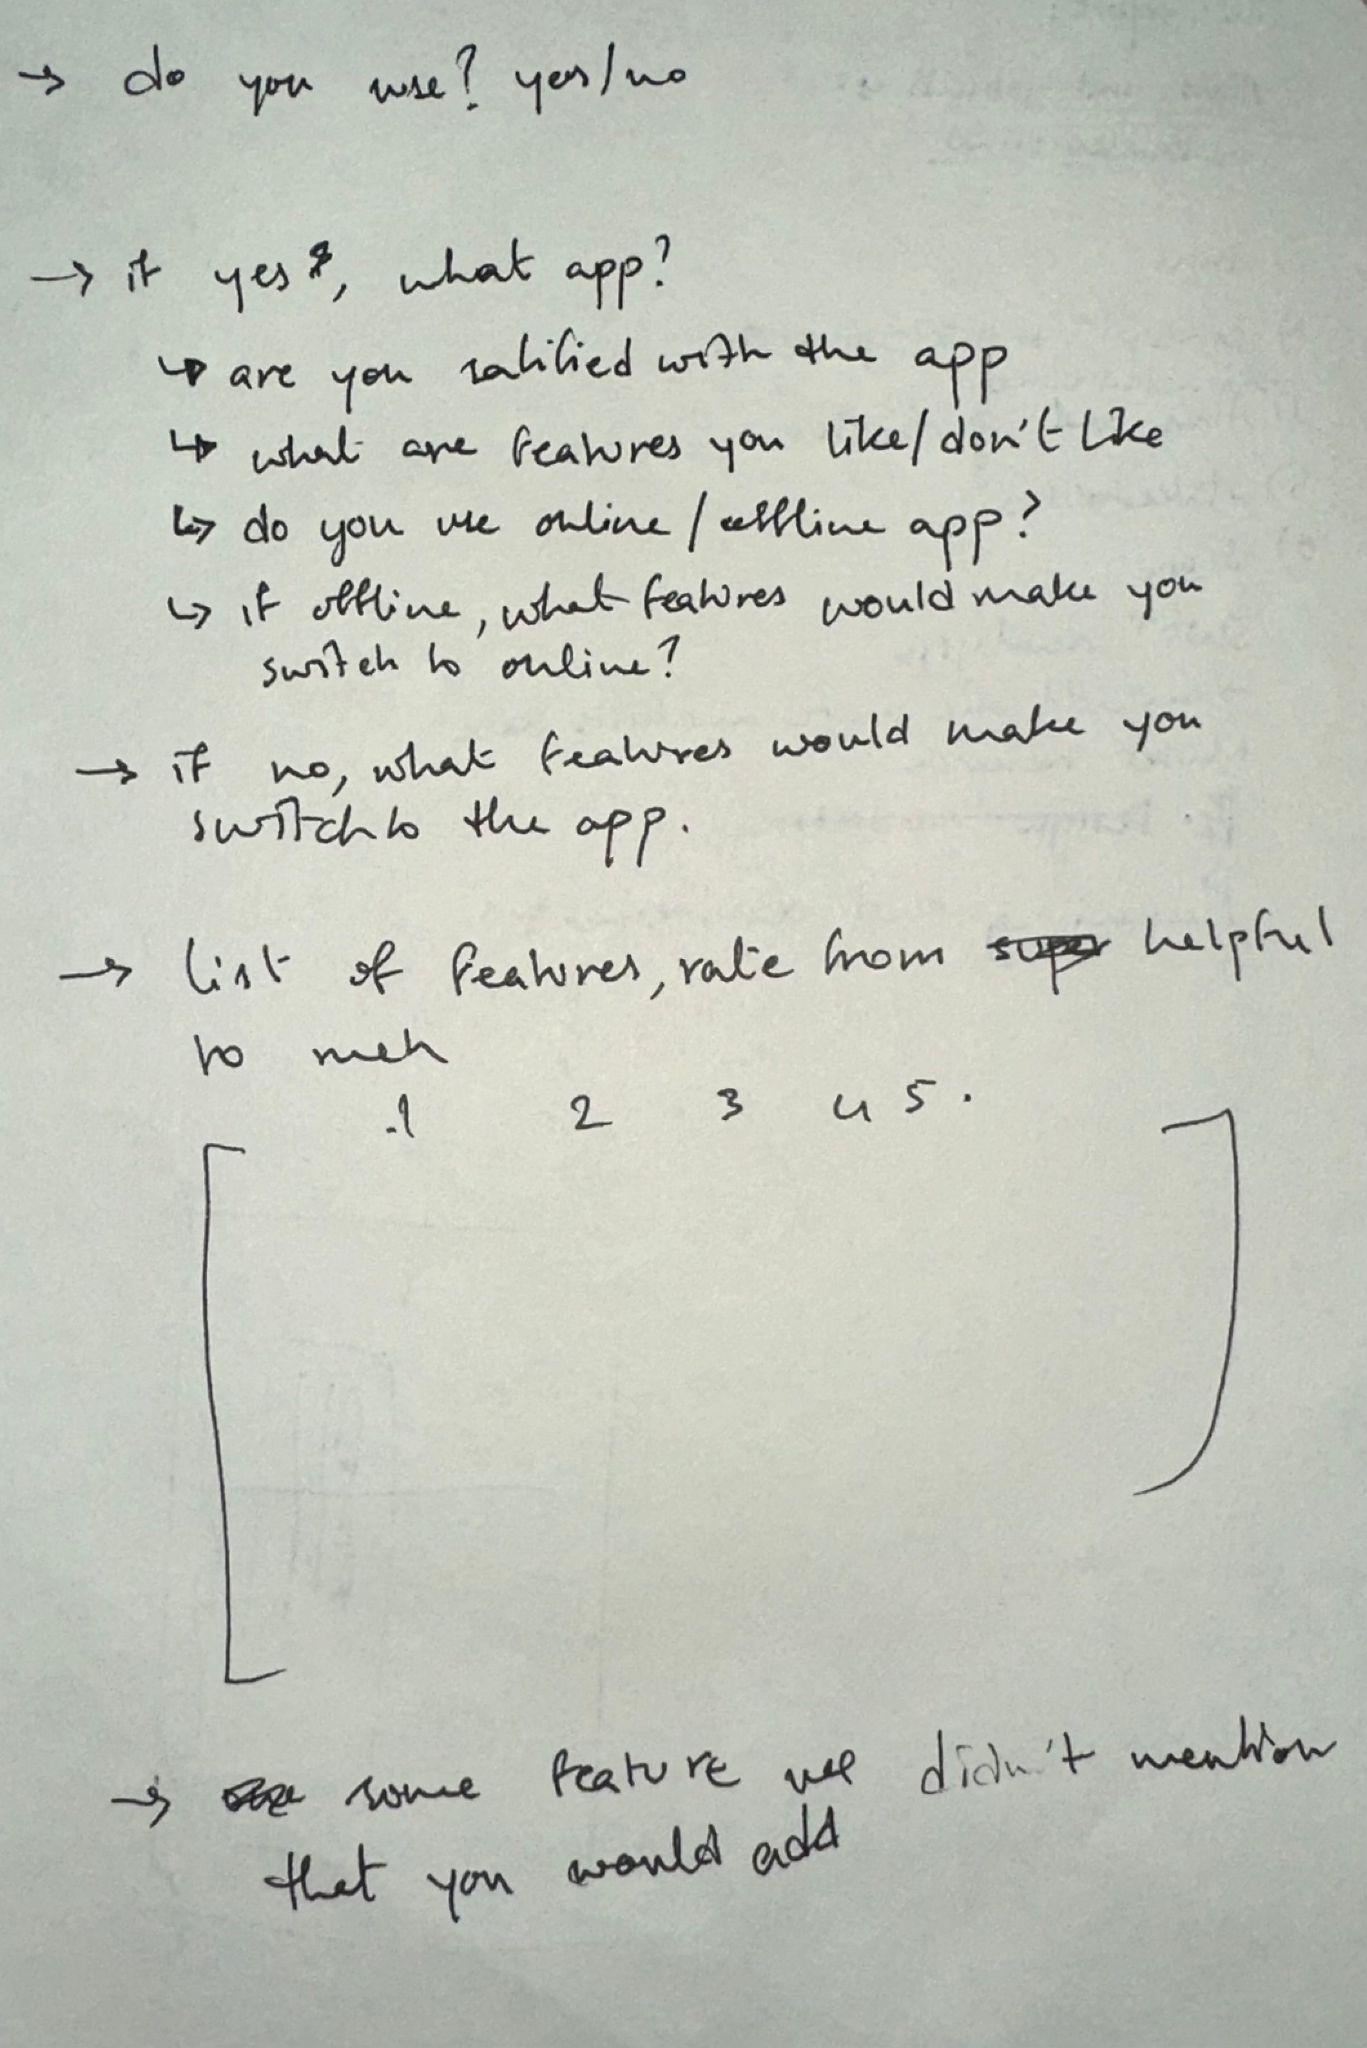 → do you use? yes/no
→ if yes, what app?
↳ are you satified with the app
↳ what are features you like/don't like
↳ do you use online/offline app?
↳ if offline, what features would make you
switch to online?
→ if no, what features would make you
switch to the app.
→ list of features, rate from helpful
to meh
1 2 3 4 5.
→ some feature we didn't mention
that you would add